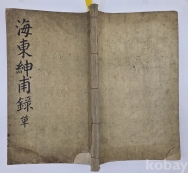 海東紳甫錄
單
kobay